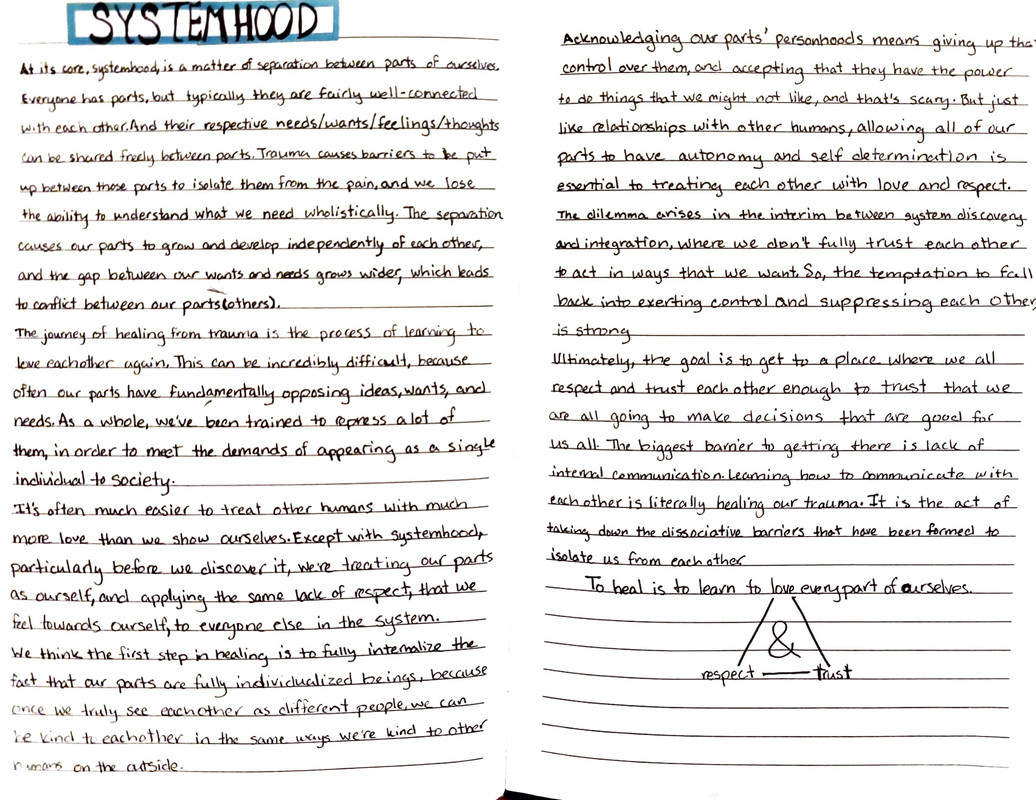 SYSTEMHOOD
At its core, systemhood, is a matter of separation between parts of ourselves.
Everyone has parts, but typically they are fairly well-connected
with each other. And their respective needs/wants/feelings/thoughts
can be shared freely between parts. Trauma causes barriers to be put
up between those parts to isolate them from the pain, and we lose
the ability to understand what we need wholistically. The separation
causes our parts to grow and develop independently of each other,
and the gap between our wants and needs grows wider, which leads
to conflict between our parts (others).
The journey of healing from trauma is the process of learning to
love eachother again. This can be incredibly difficult, because
often our parts have fundamentally opposing ideas, wants, and
needs. As a whole, we've been trained to repress a lot of
them, in order to meet the demands of appearing as a single
individual to society.
It's often much easier to treat other humans with much
more love than we show ourselves. Except with systemhood,
particularly before we discover it, we're treating our parts
as ourself, and applying the same lack of respect, that we
feel towards ourself, to everyone else in the system.
We think the first step in healing is to fully internalize the
fact that our parts are fully individualized beings, because
once we truly see eachother as different people, we can
be kind to eachother in the same ways we're kind to other
humans on the outside.
Acknowledging our parts' personhoods means giving up the
control over them, and accepting that they have the power
to do things that we might not like, and that's scary. But just
like relationships with other humans, allowing all of our
parts to have autonomy and self determination is
essential to treating each other with love and respect.
The dilemma arises in the interim between system discovery
and integration, where we don't fully trust each other
to act in ways that we want. So, the temptation to fall
back into exerting control and suppressing each other
is strong
Ultimately, the goal is to get to a place where we all
respect and trust each other enough to trust that we
are all going to make decisions that are good for
us all. The biggest barrier to getting there is lack of
internal communication. Learning how to communicate with
each other is literally healing our trauma. It is the act of
taking down the dissociative barriers that have been formed to
isolate us from each other
To heal is to learn to love every part of ourselves.
&
respect — trust